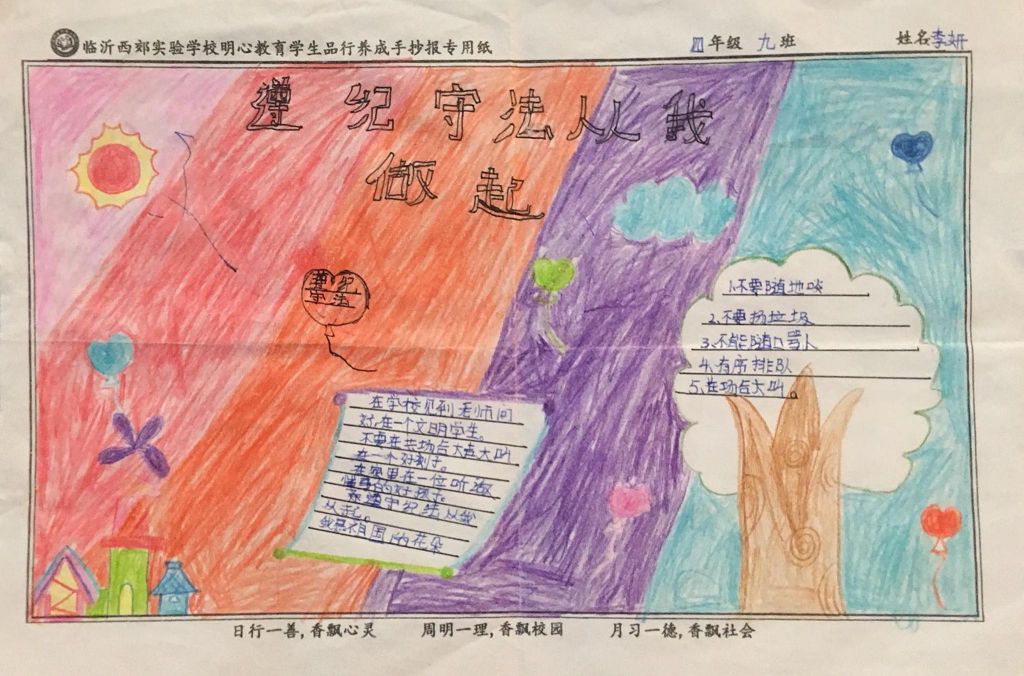 临沂西郊实验学校明心教育学生品行养成手抄报专用纸
四年级 九班
姓名李妍
遵纪守法从我
做起
遵纪
守法
1.不要随地吐
2、不要扔垃圾
3、不能随口骂人
4.有序排队
5、在功合大叫。
在学校见到老师问
好,在一个文明学生。
不要在共功合大声大叫
在一个好刻子。
在家里在一位听
的好孩子。
遵守纪法从我
从起。
我是祖国的花朵
日行一善,香飘心灵 周明一理,香飘校园 月习一德,香飘社会